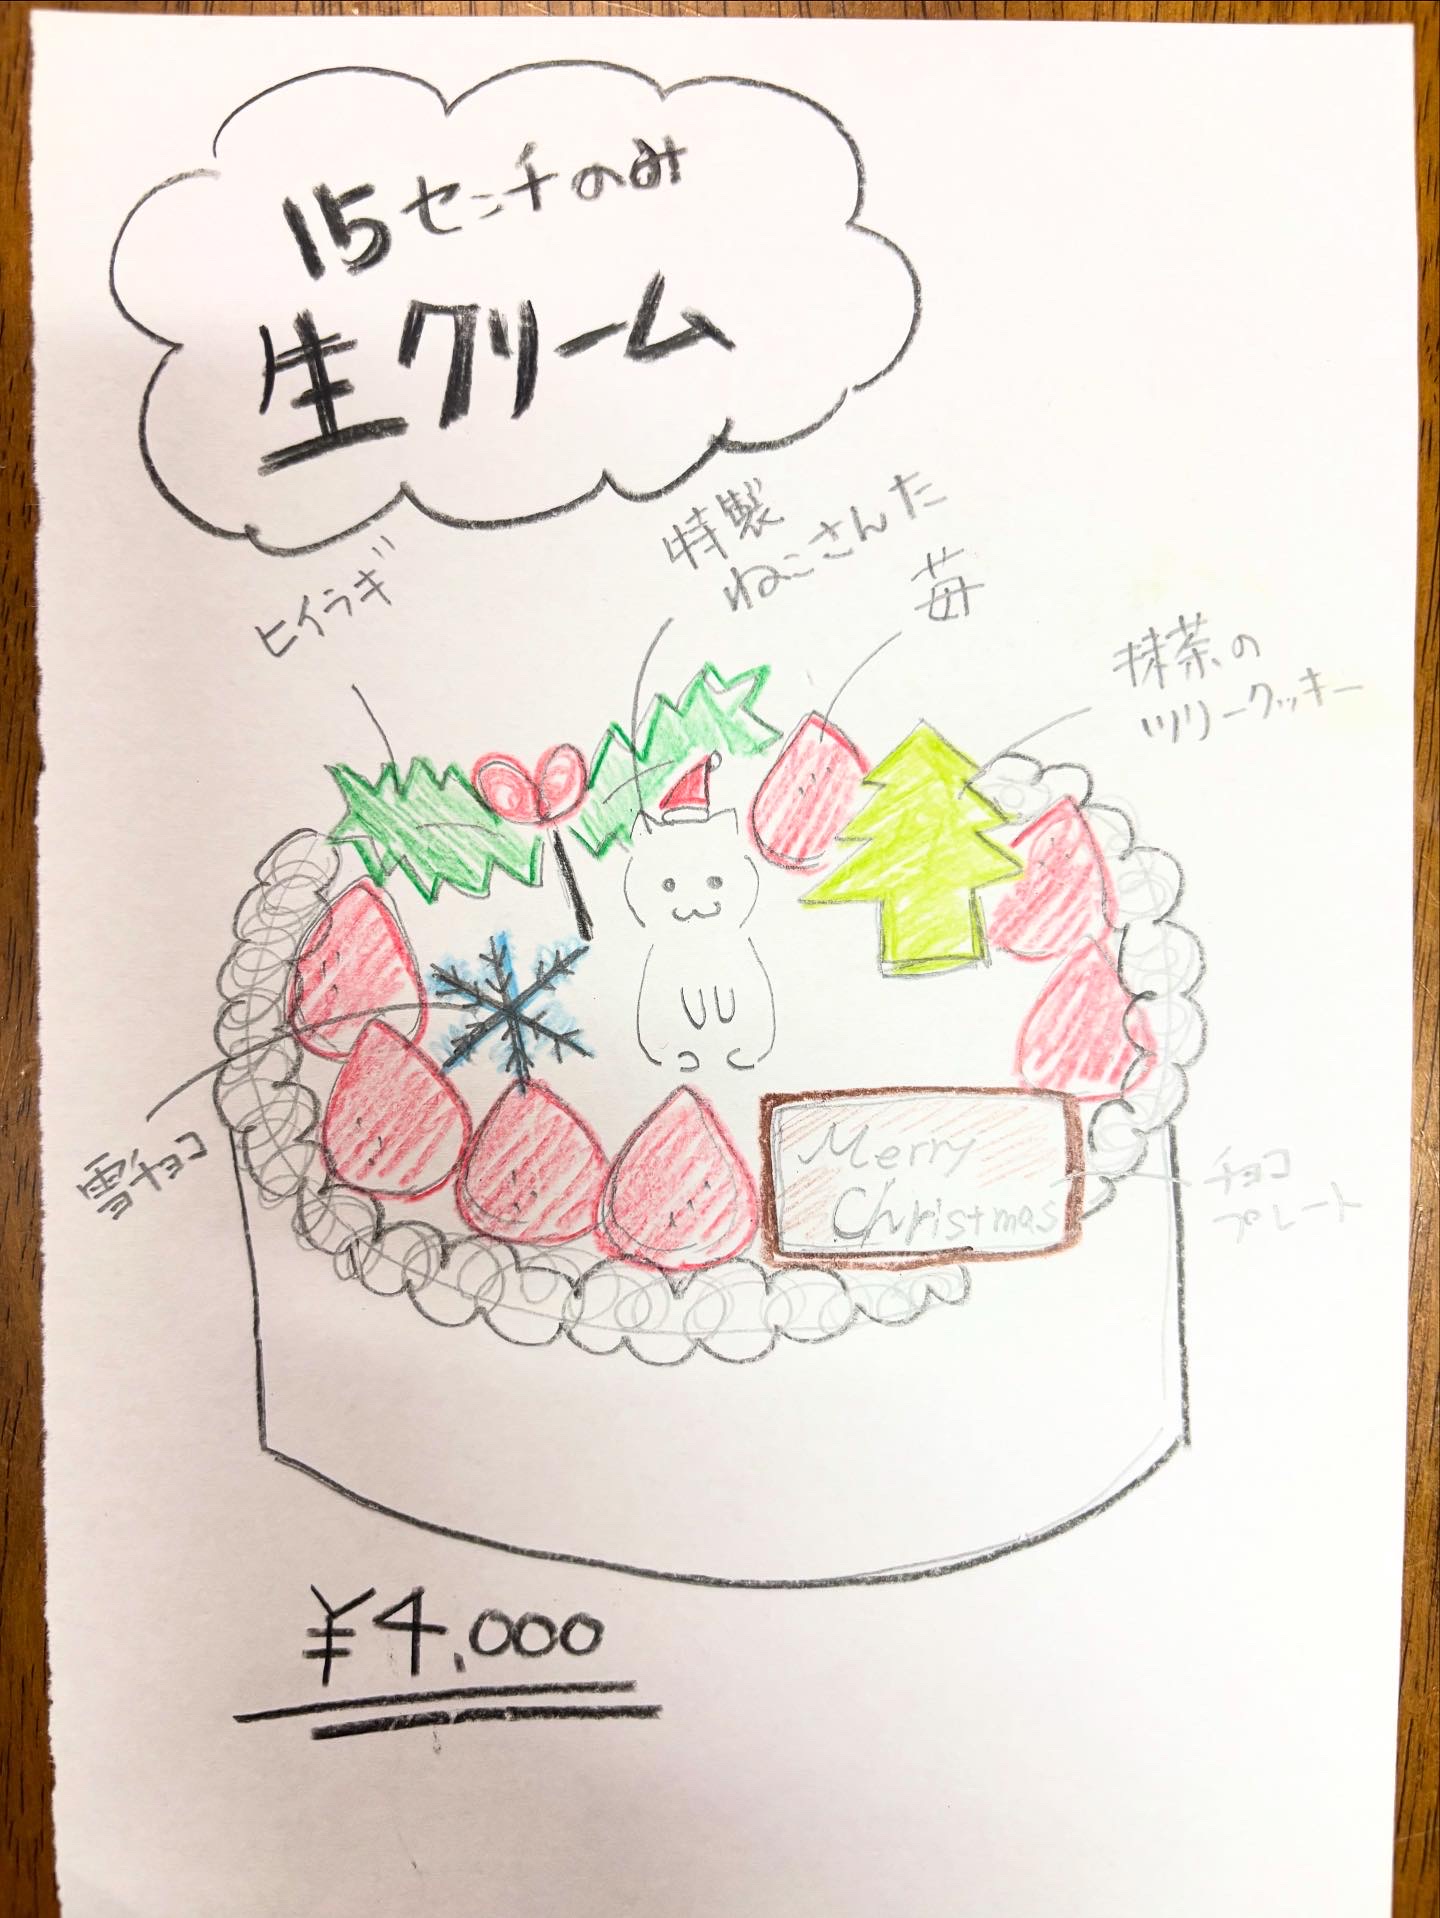 15センチのみ
生クリーム
ヒイラギ
特製
ねこさんた
苺
抹茶の
ツリークッキー
雪チョコ
Merry
Christmas
チョコ
プレート
¥4,000